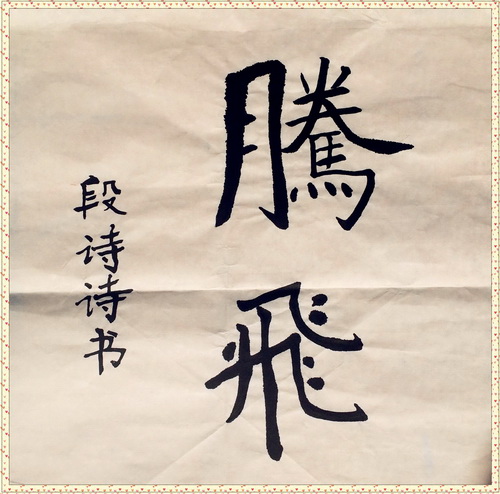 騰飛
段诗诗书